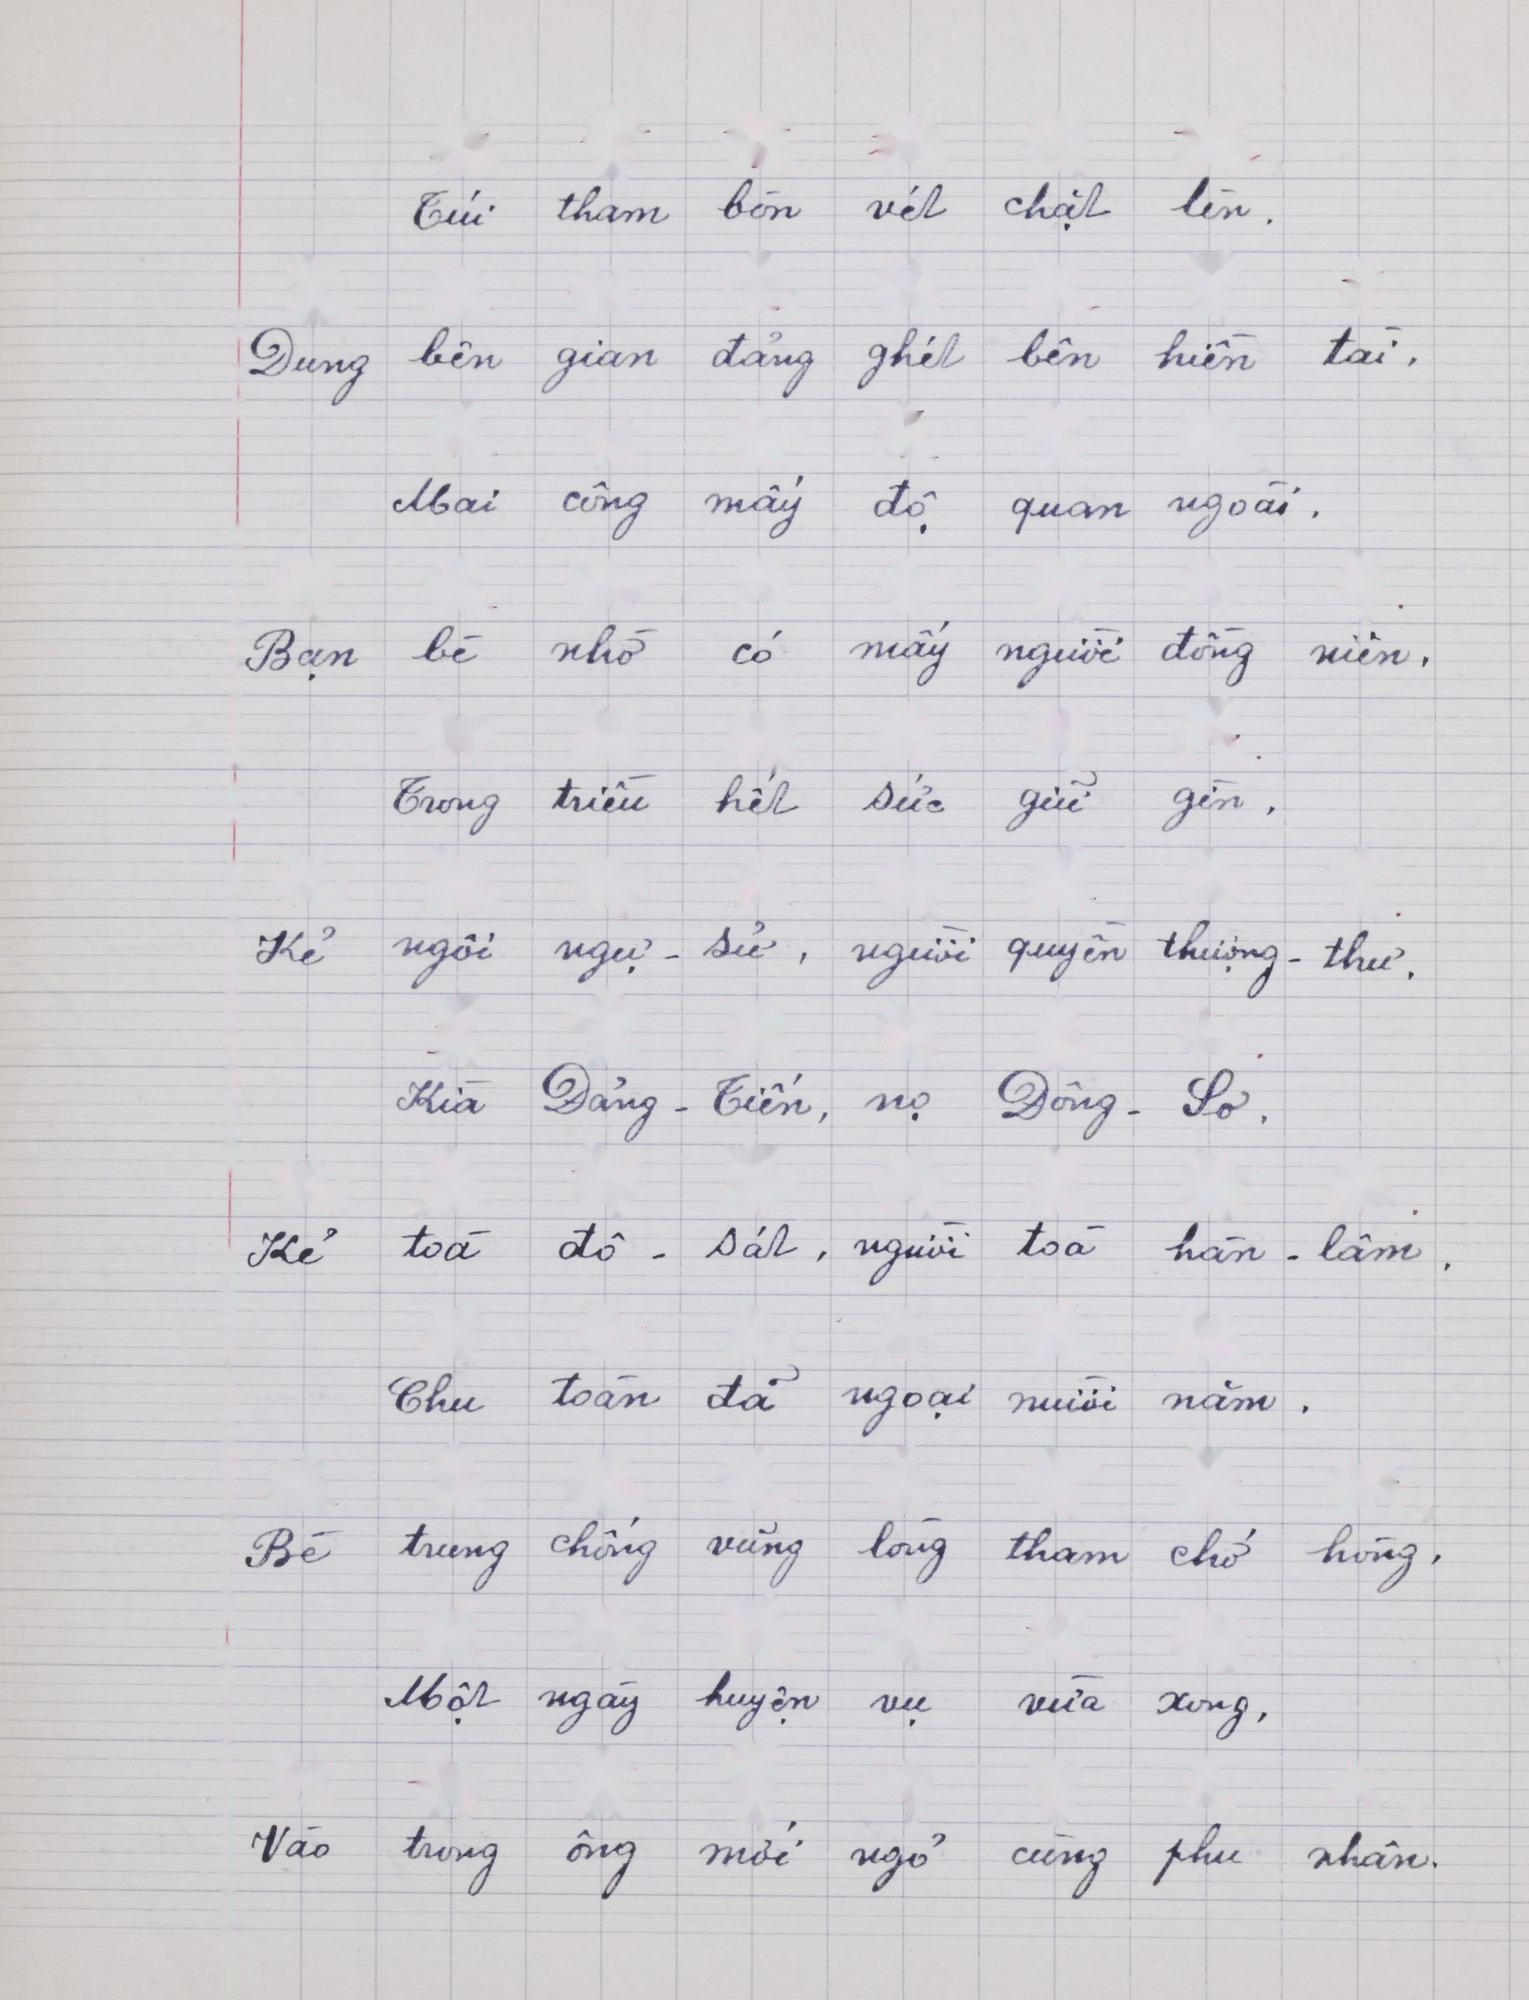 Túi tham bòn vét chặt lèn.
Dung bên gian đảng ghét bên hiền tài.
Mai công mấy độ quan ngoài.
Bạn bè nhờ có mấy người đồng niên.
Trong triều hết sức giữ gìn.
Kẻ ngôi ngự-sử, người quyền thượng-thư.
Kìa Đảng-Tiến, nọ Đông-Sơ.
Kẻ toà đô-sát, người toà hàn-lâm.
Chu toàn đã ngoại mười năm.
Bè trung chống vững lòng tham chớ hòng.
Một ngày huyện vụ vừa xong,
Vào trong ông mới ngỏ cùng phu nhân.